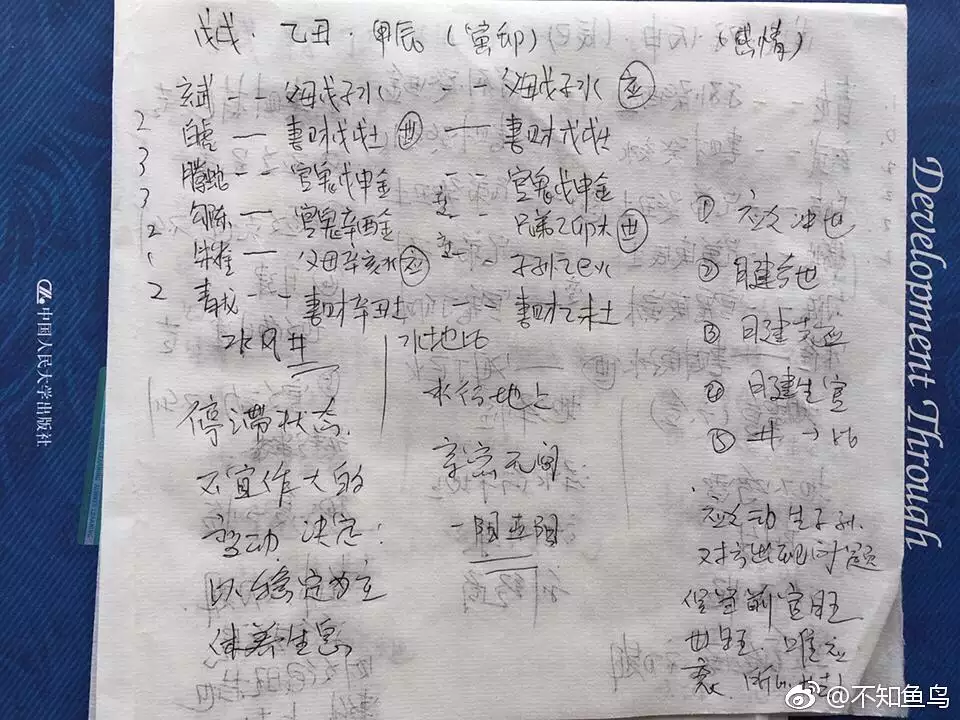 戊戌. 乙丑. 甲辰 (寅卯) (感情)
玄武 -- 父母戊子水 -- 父母戊子水 应
2 白虎 — 妻财戊戌土 世 — 妻财戊戌土
3 腾蛇 -- 官鬼戊申金 -- 官鬼戊申金
3 勾陈 — 官鬼辛酉金 -- 兄弟乙卯木 世
2 朱雀 — 父母辛亥水 应 -- 子孙乙巳火
2 青龙 -- 妻财辛丑土 妻财乙未土
水风井
水地比
停滞状态
不宜作大的
变动 决定:
以稳定为主
休养生息
水行地上
亲密无间
一阳五阴
① 应 冲世
② 日建 世
③ 日建 应
④ 日建生官
⑤ 井→比
应 动生子孙
对方出现问题
但 前官旺
世旺. 唯应
衰.
中国人民大学出版社
Development Through
@不知鱼鸟